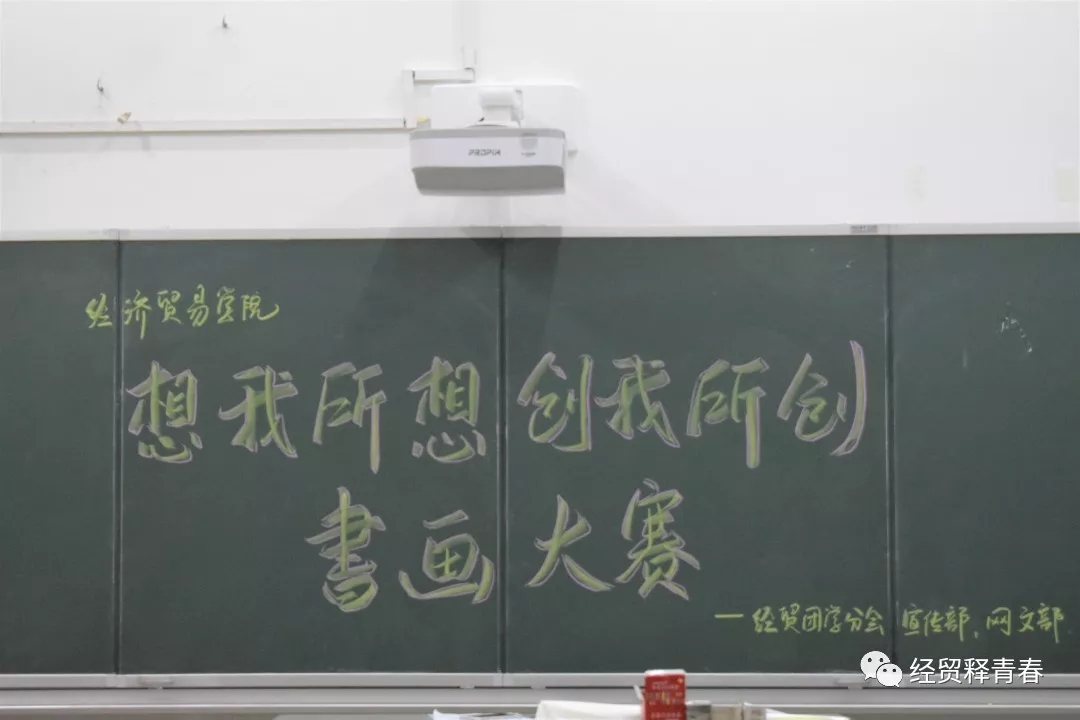 经济贸易学院
想我所想 创我所创
書画大赛
—经贸团学分会 宣传部、网文部
经贸释青春